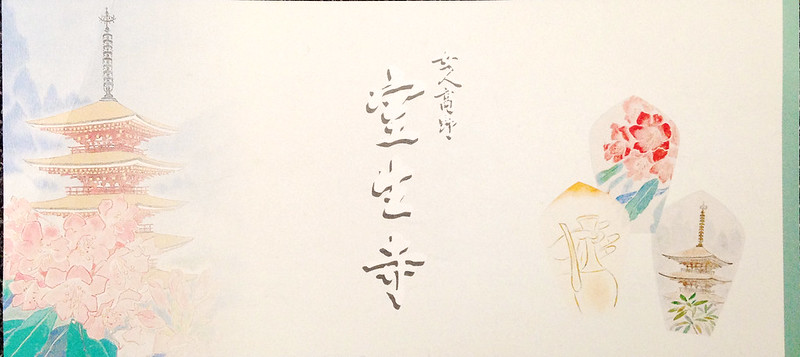 女人高野
室生寺